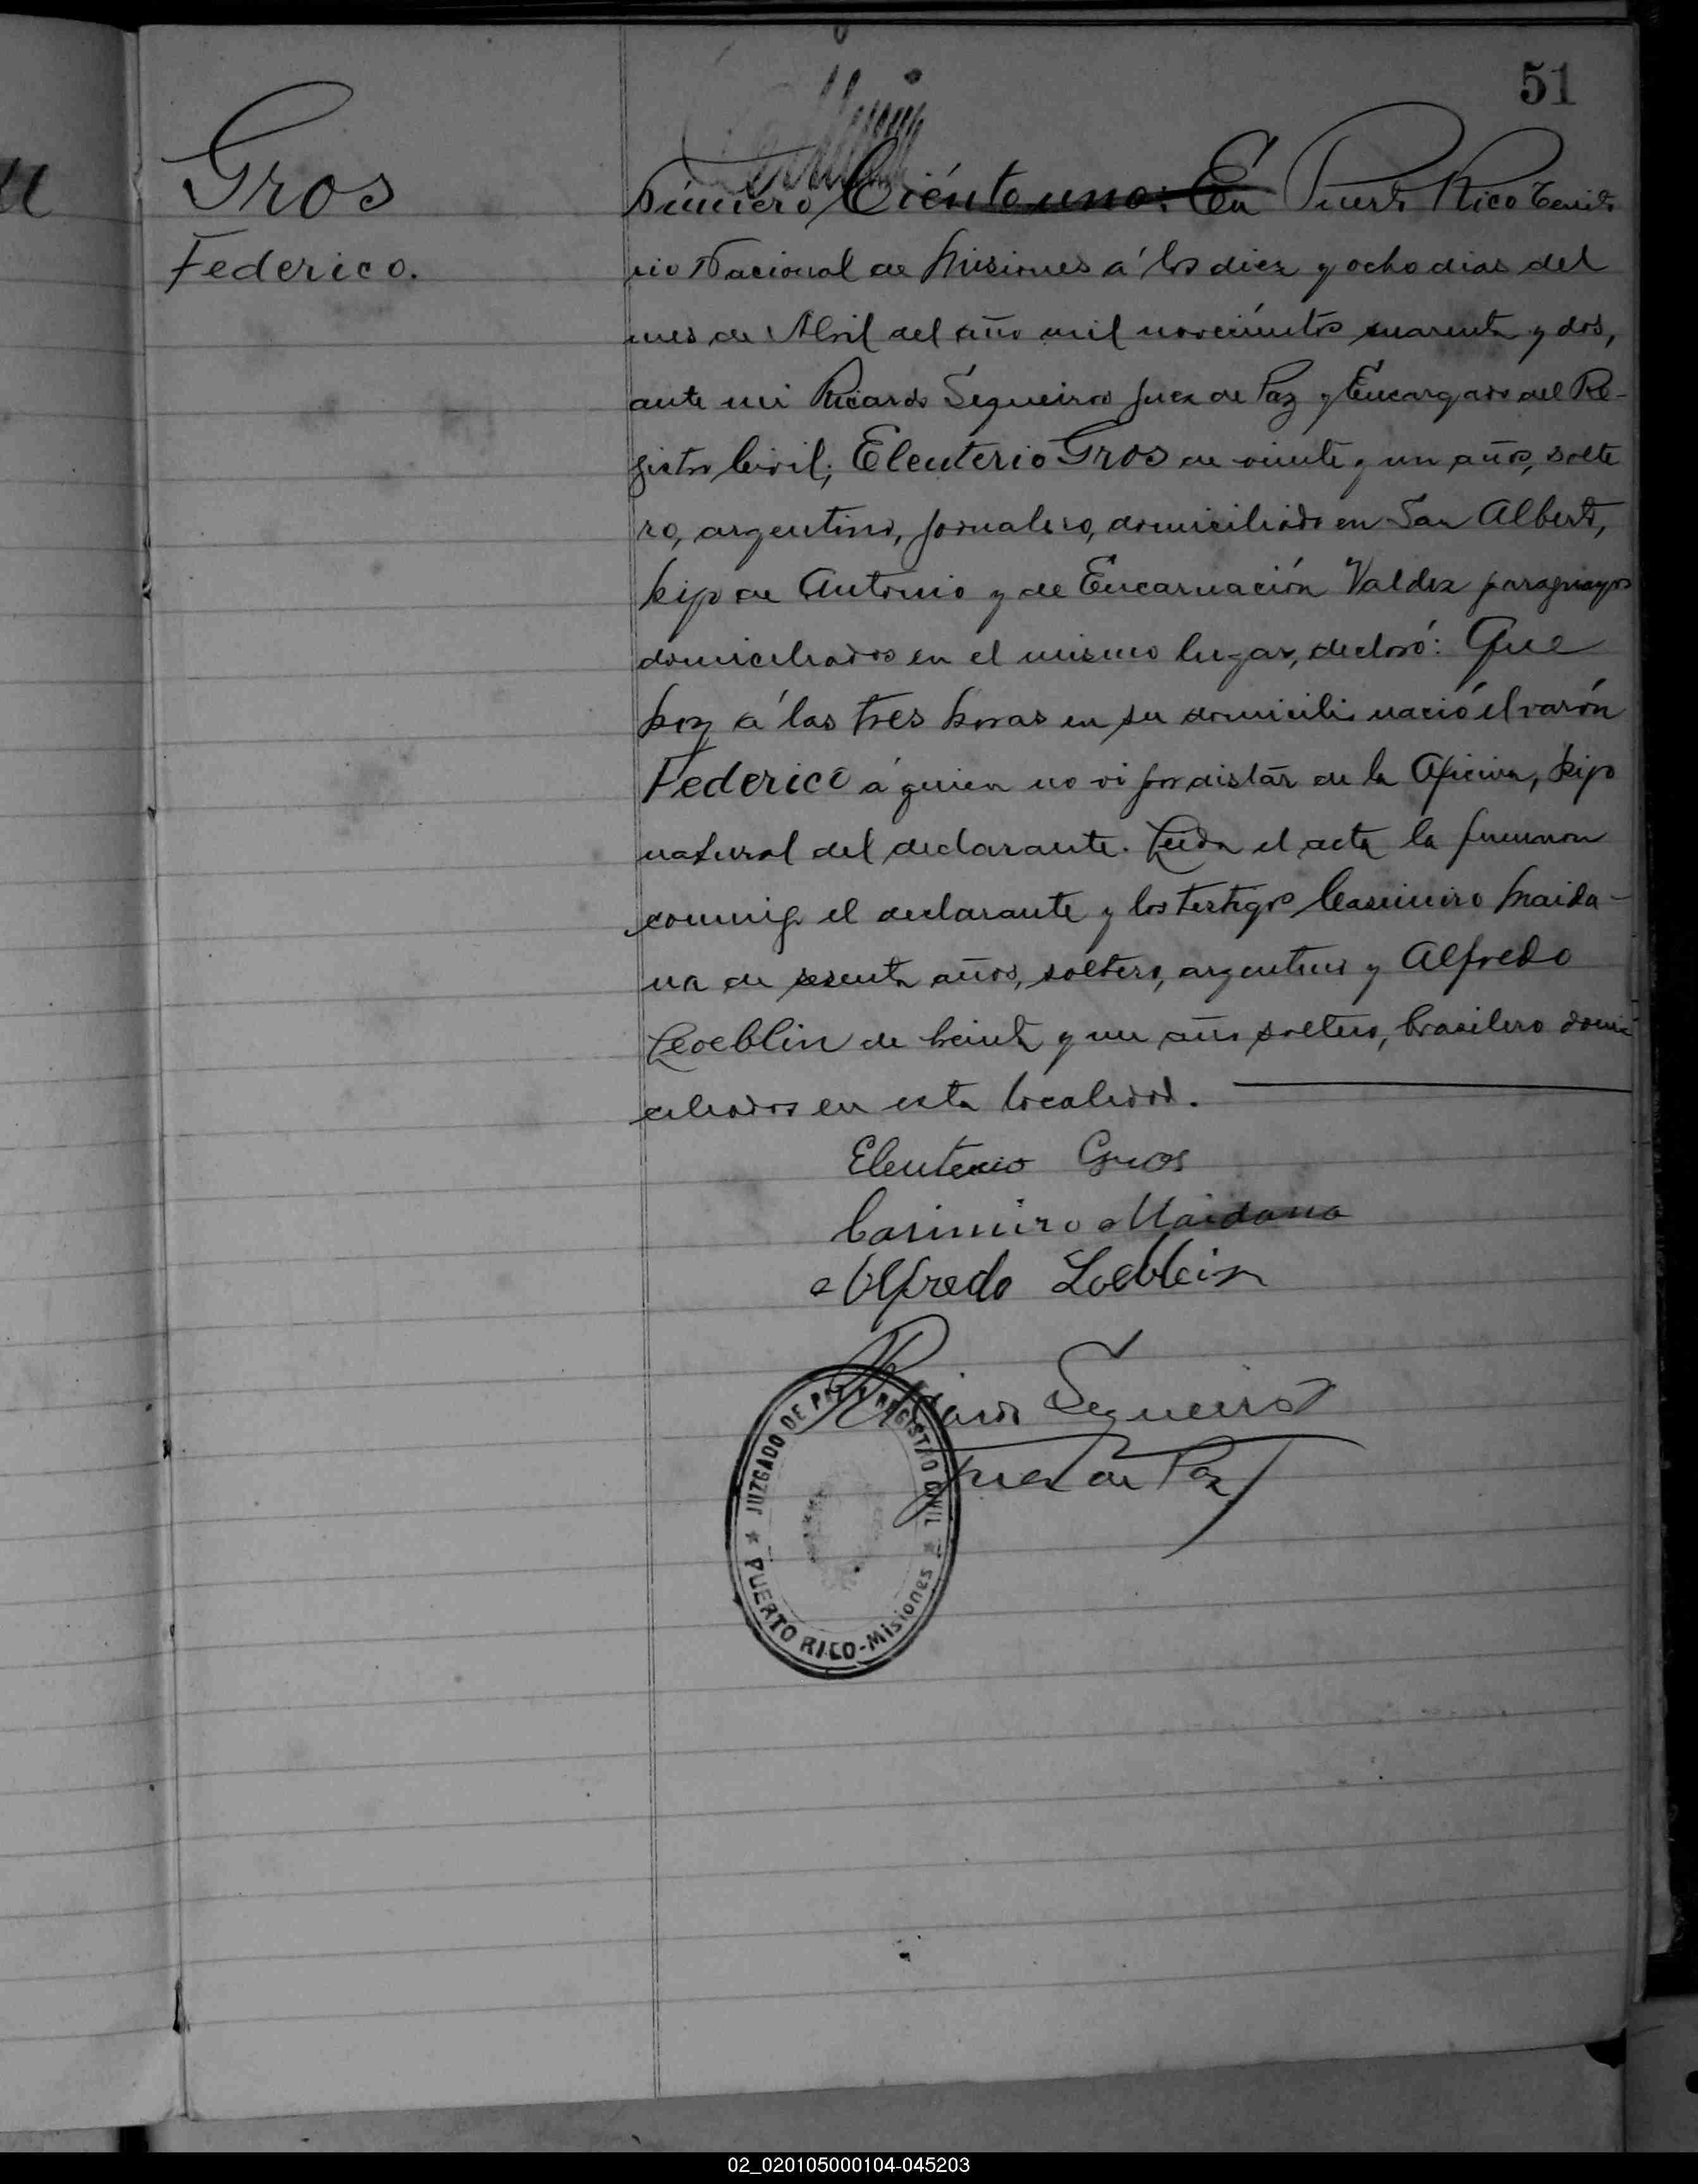 51
Gros
Federico.
Número Ciento uno: En Puerto Rico Territo
rio Nacional de Misiones á los diez y ocho dias del
mes de Abril del año mil novecientos cuarenta y dos,
ante mi Ricardo Sequeira Juez de Paz y Encargado del Re-
gistro Civil; Eleuterio Gros de veinte y un años, solte
ro, argentino, jornalero, domiciliado en San Alberto,
hijo de Antonio y de Encarnación Valdez paraguayos
domiciliados en el mismo lugar, declaró: Que
hoy á las tres horas en su domicilio nació el varón
Federico á quien no vi por distar de la Oficina, hijo
natural del declarante. Leida el acta la firmaron
conmigo el declarante y los testigos Casimiro Maida-
na de sesenta años, soltero, argentino y Alfredo
Loeblin de treinta y un año soltero, brasilero domi
ciliados en esta localidad.
Eleuterio Gros
Casimiro Maidana
Alfredo Loeblein
Ricardo Sequeira
Juez de Paz
JUZGADO DE PAZ Y REGISTRO CIVIL
PUERTO RICO-Misiones
02_020105000104-045203